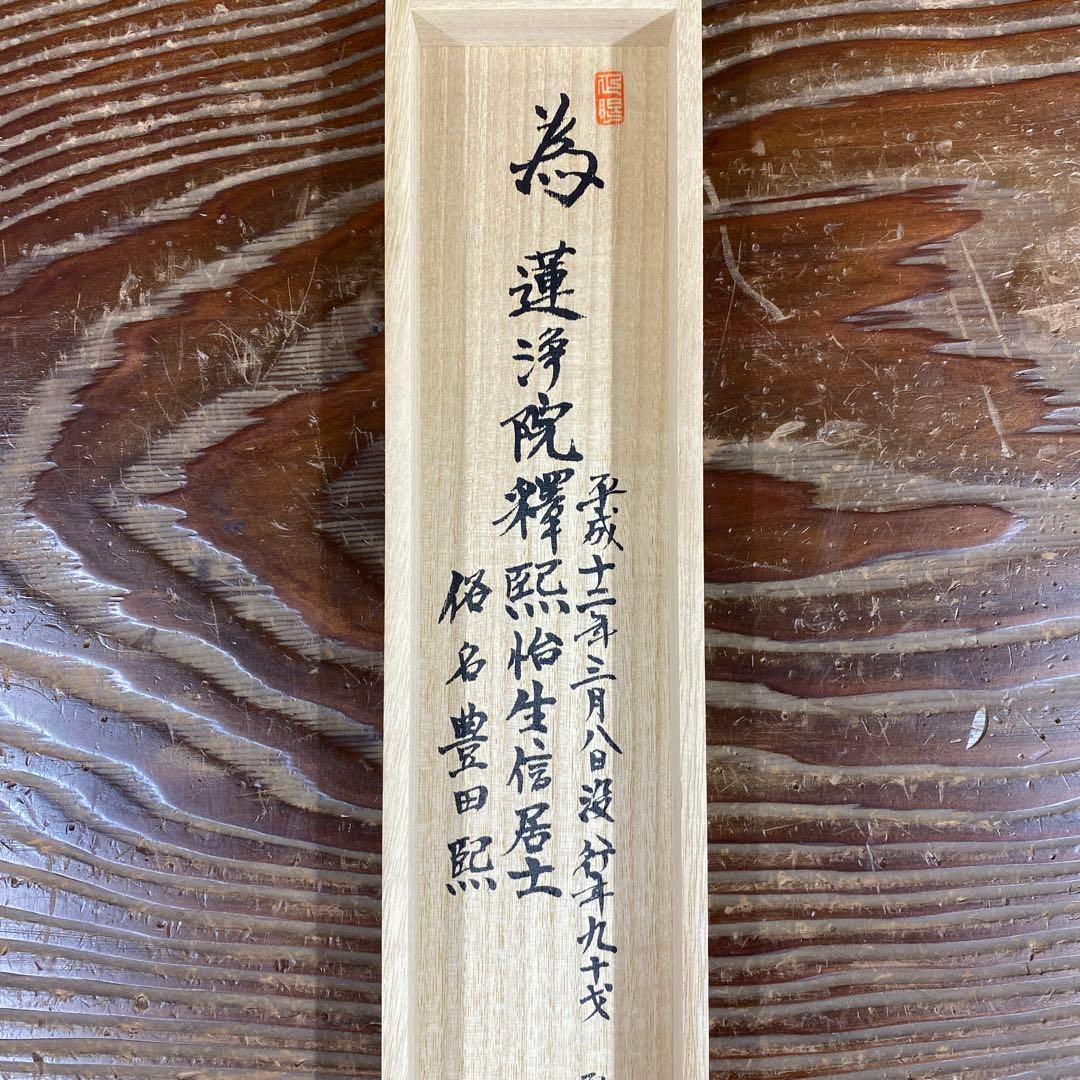 平成十二年三月八日没 行年九十才
為 蓮浄院釋熙怡生信居士
俗名 豊田熙